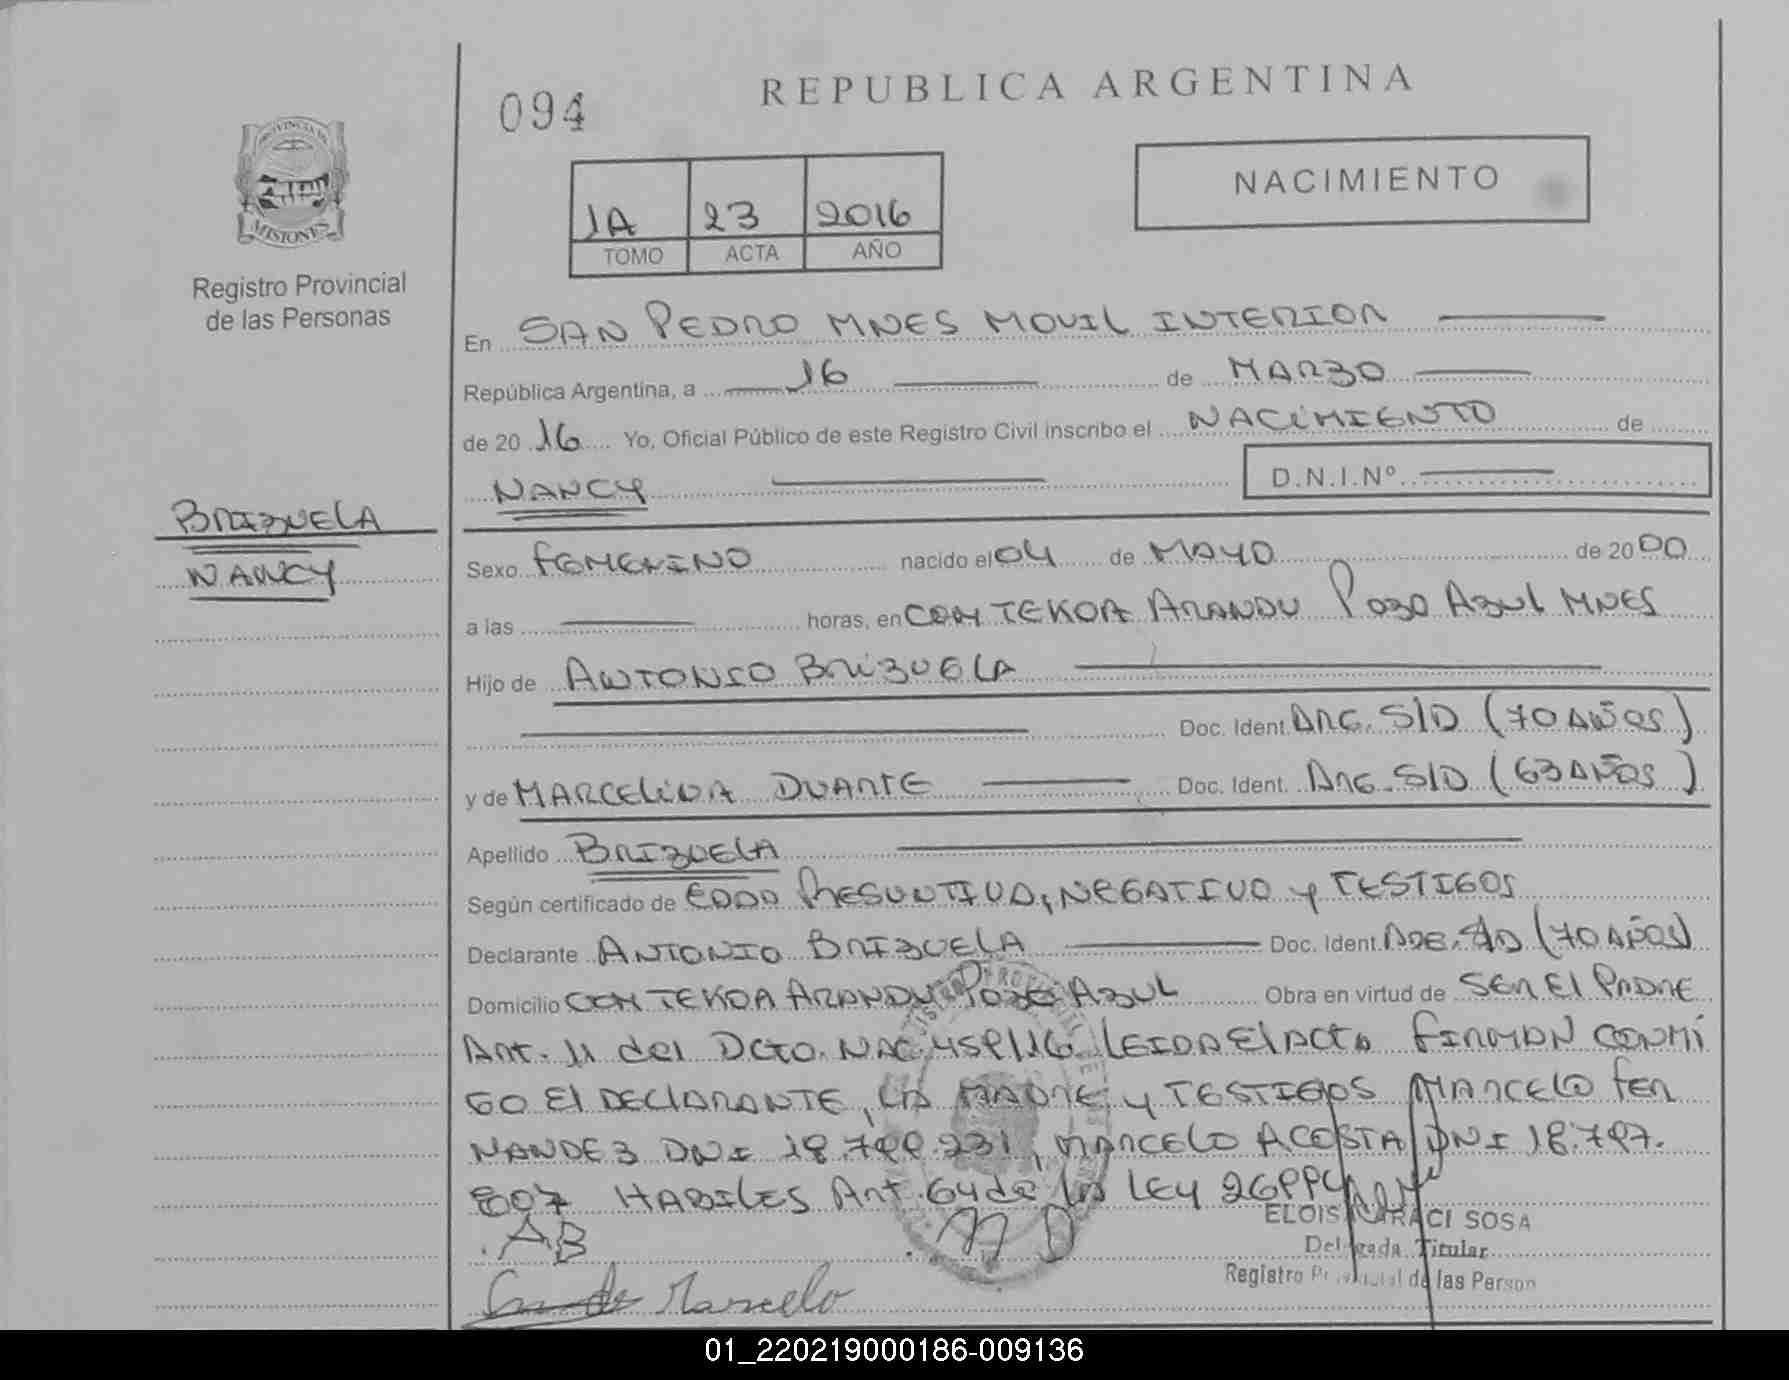 094
REPUBLICA ARGENTINA
PROVINCIA DE
MISIONES
Registro Provincial
de las Personas
NACIMIENTO
1A 23 2016
TOMO ACTA AÑO
En SAN PEDRO MNES MOVIL INTERIOR
República Argentina, a 16 de MARZO
de 20 16 Yo, Oficial Público de este Registro Civil inscribo el NACIMIENTO de
NANCY D.N.I.Nº
BRIZUELA
NANCY
Sexo FEMENINO nacido el 04 de MAYO de 20 00
a las horas, en COM TEKOA ARANDU POZO AZUL MNES
Hijo de ANTONIO BRIZUELA
Doc. Ident. ARG. S/D (70 AÑOS)
y de MARCELINA DUARTE Doc. Ident. ARG. S/D (63 AÑOS)
Apellido BRIZUELA
Según certificado de EDAD PRESUNTIVA, NEGATIVO y TESTIGOS
Declarante ANTONIO BRIZUELA Doc. Ident. ARG. S/D (70 AÑOS)
Domicilio COM TEKOA ARANDU POZO AZUL Obra en virtud de SER El PADRE
Art. 11 del DCTO. NAC. 459/16 LEIDA El ACTA FIRMAN CONMI
GO El DECLARANTE, LA MADRE y TESTIGOS MARCELO FER
NANDEZ DNI 18.799.231, MARCELO ACOSTA DNI 18.797.
807 HABILES Art. 64 de la LEY 26994
AB
M D
Marcelo
ELOISA CARACI SOSA
Delegada Titular
Registro Provincial de las Person
01_220219000186-009136